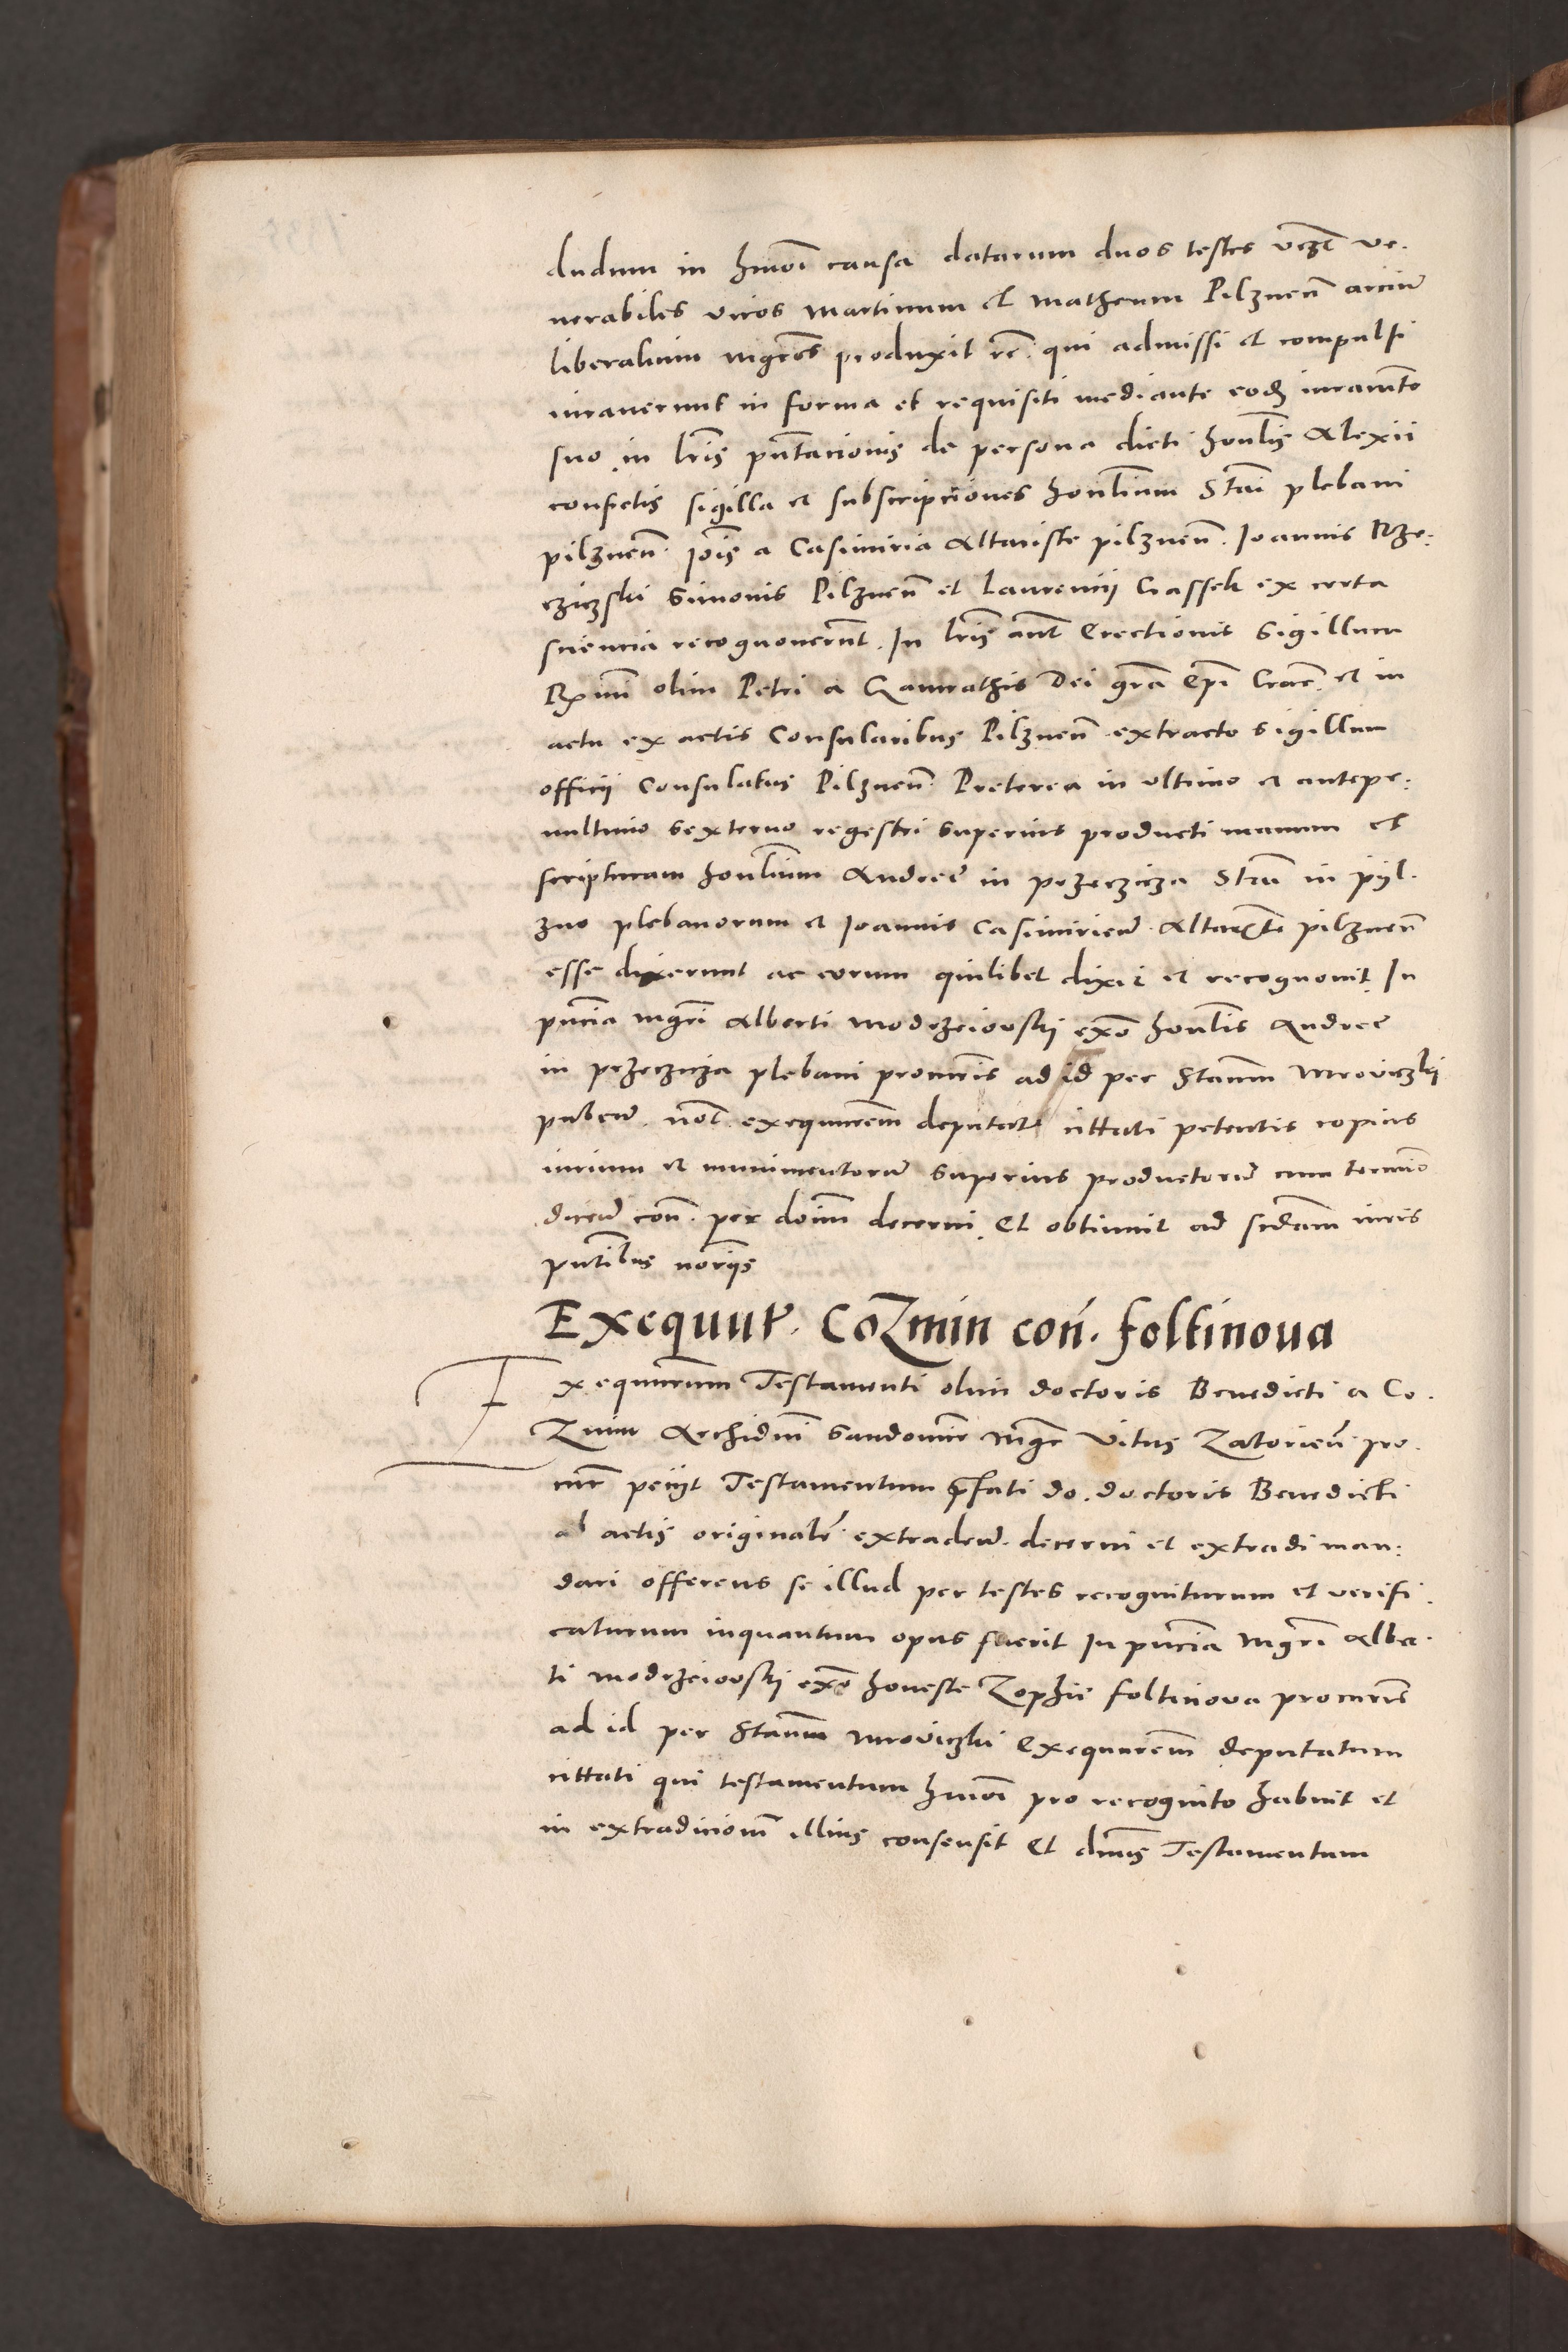 dudum in hmoi causa datarum duos testes vczt ve-
nerabiles viros Martinum et Matheum Pilznen arcium
liberalium mgros produxit rc. qui admissi et compulsi
iuraverunt in forma et requisiti mediante eodem iuramto
suo in lris pntacionis de persona dicti honlis Alexii
confectis sigilla et subscripciones honlium Stai plebani
pilznen. Jois a Casimiria Altariste pilznen. Joannis Rze-
cziczski Simonis Pilznen et Laurencii Gassek ex certa
sciencia recognoverunt. In lris aut Erectionis sigillum
Rmi olim Petri a Gamrathis Dei gra Epi Crac. et in
actu ex actis Consularibus Pilznen extracto sigillum
officii Consulatus Pilznen. Preterea in ultimo et antepe-
nultimo sexterno regestri superius producti manum et
scripturam honlium Andree in przeczicza Stai in pyl-
zno plebanorum et Joannis Casimirien. Altariste pilznen
esse dixerunt ac eorum quilibet dixit et recognovit. In
pncia mgri Alberti Modrzeiovskj exo honlis Andree
in przeczicza plebani procuris ad id per Stanm Mroviczkj
pubcum. not. exequurem deputati cittati petentis copias
iurium et munimentorum superius productorum cum termio
dicend con. per doim decerni. Et obtinuit ad scdam iuris
pntibus noriis
Exequut. Cozmin con. foltinova
Exequurum Testamenti olim doctoris Benedicti a Co-
zmin Archidni Sandomir mgr Vitus Zatorien. pro-
cur peciit Testamentum prefati do. doctoris Benedicti
ab actis originale. extradend. decerni et extradi man-
dari offerens se illud per testes recogniturum et verifi-
caturum inquantum opus fuerit In pncia mgri Alber-
ti Modrzeiovskj exo honeste Zophie foltinova procuris
ad id per Stanm Mroviczki Exequurem deputatum
cittati qui testamentum hmoi pro recognito habuit et
in extradicionem illius consensit Et dnus Testamentum